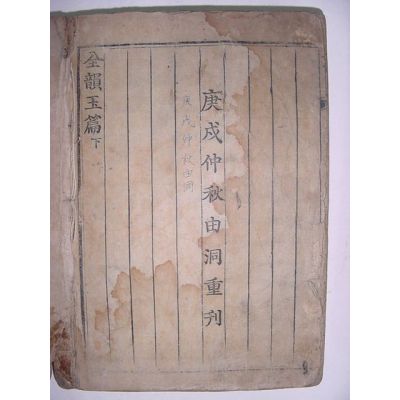 庚戌仲秋由洞重刊
庚戌仲秋由洞
全韻玉篇下